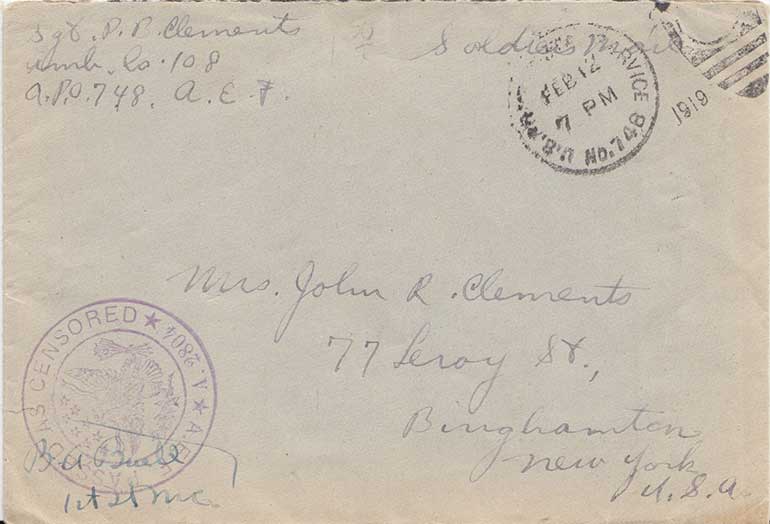 Sgt. P. R. Clements
Amb. Co. 108
A.P.O. 748. A. E. F.
Soldiers Mail
SERVICE
FEB 12
7 PM
No. 748
1919
Mrs. John R. Clements
77 Leroy St.,
Binghamton
New York
U. S. A.
CENSORED ★ A. 2804 ★ A.E.F.
1st Lt M.C.